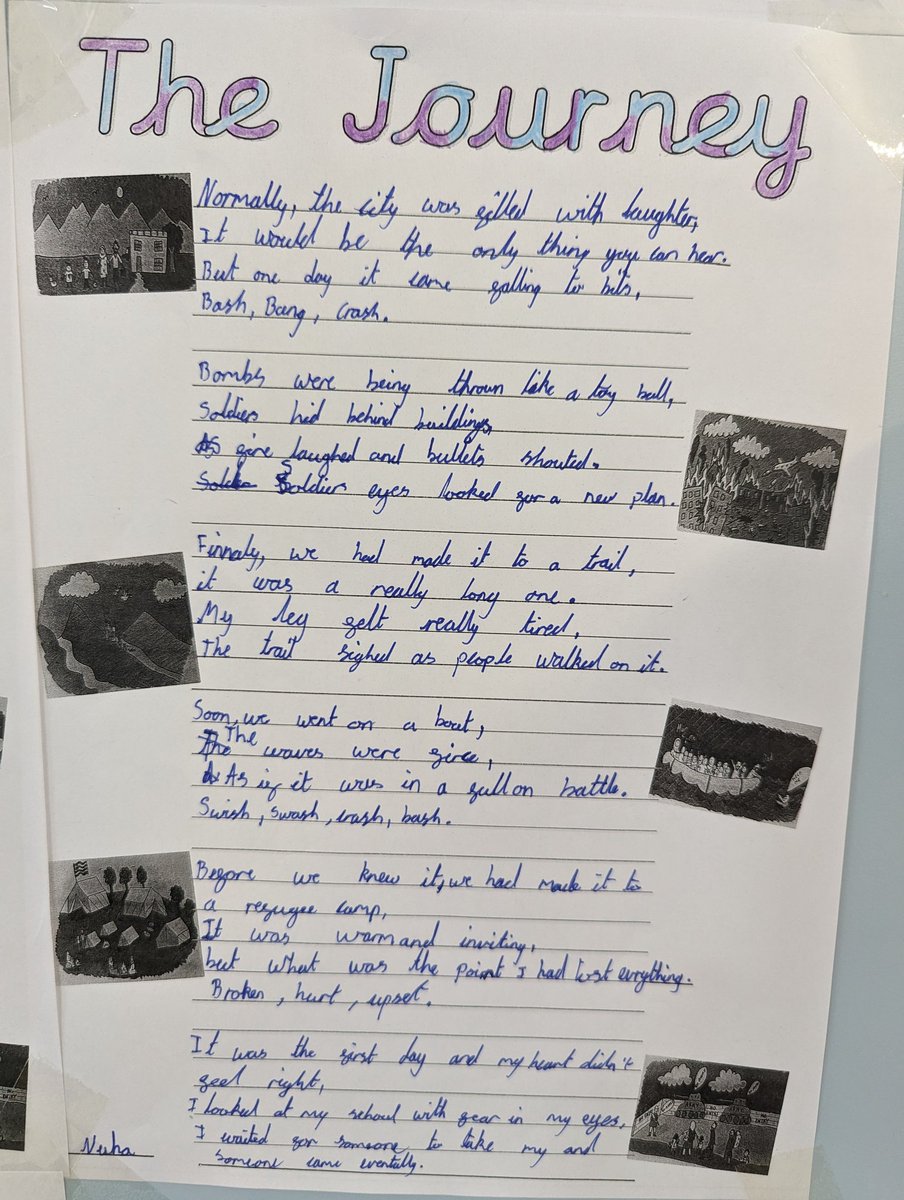 The Journey
Normally, the city was filled with laughter,
It would be the only thing you can hear.
But one day it came falling to bits,
Bash, Bang, Crash.
Bombs were being thrown like a toy ball,
Soldiers hid behind buildings,
fire laughed and bullets shouted.
Soldier eyes looked for a new plan.
Finnaly, we had made it to a trail,
it was a really long one.
My leg felt really tired,
The trail sighed as people walked on it.
Soon, we went on a boat,
The waves were firce,
As if it was in a full on battle.
Swish, swash, crash, bash.
Before we knew it, we had made it to
a refugee camp,
It was warm and inviting,
but what was the point I had lost evrything.
Broken, hurt, upset.
It was the first day and my heart didn't
feel right,
I looked at my school with fear in my eyes,
I waited for someone to take my and
someone came eventully.
Nuha